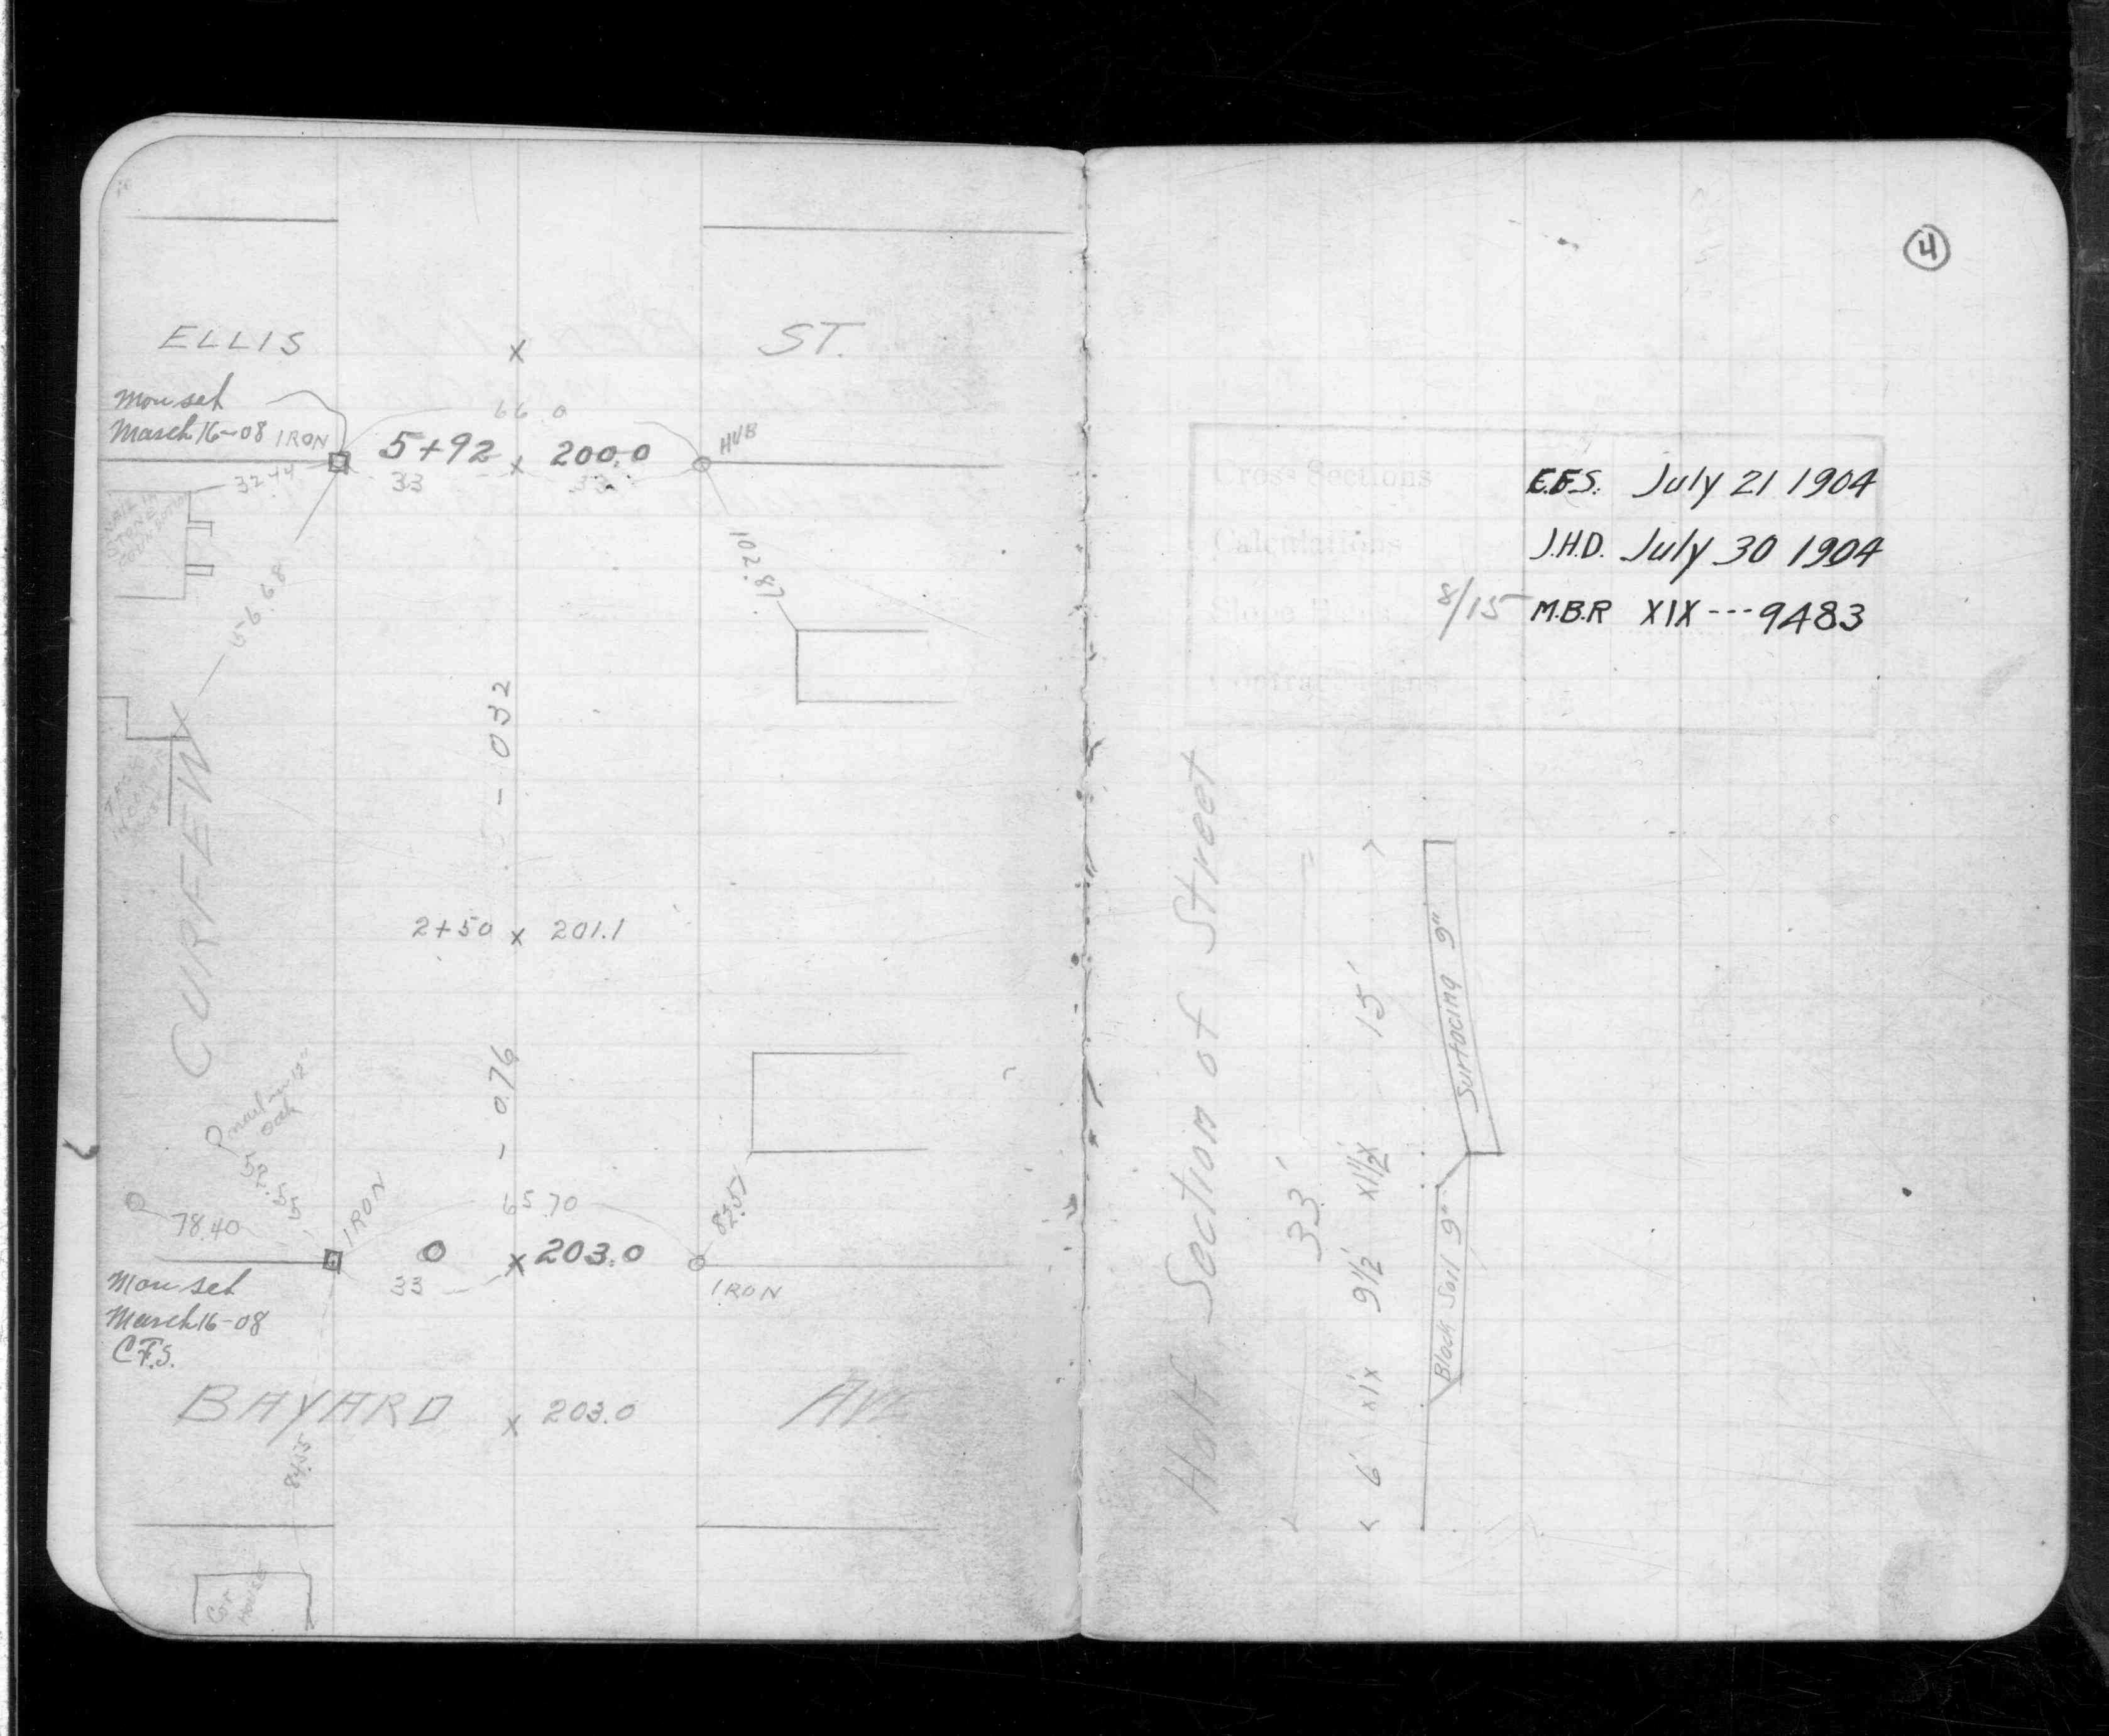 ELLIS ST.
x
Mon set
March 16-08 IRON
66.0
5+92 x 200.0
HUB
33
33
32.44
NAIL IN
STONE
FOUNDATION
102.87
56.68
- 0.32
CURFEW
2+50 x 201.1
- 0.76
nail in 12"
oak
52.55
78.40
IRON
65.70
82.51
0 x 203.0
33
IRON
Mon set
March 16-08
C.F.S.
BAYARD x 203.0 AVE
84.55
Cor
HOUSE
4
Cross Sections
Calculations
E.E.S. July 21 1904
J.H.D. July 30 1904
8/15 M.B.R XIX---9483
Half Section of Street
33'
6' x1'x 9½' x1½'x 15'
Black Soil 9"
Surfacing 9"